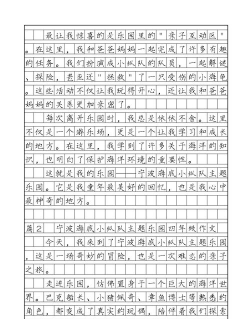 最让我惊喜的是乐园里的“亲子互动区”
。在这里，我和爸爸妈妈一起完成了许多有趣
的任务。我们扮演成小纵队的队员，一起解谜
、探险，甚至还“拯救”了一只受伤的小海龟
。这些活动不仅让我玩得开心，还让我和爸爸
妈妈的关系更加亲密了。
每次离开乐园时，我总是依依不舍。这里
不仅是一个游乐场，更是一个让我学习和成长
的地方。在这里，我学到了许多关于海洋的知
识，也明白了保护海洋环境的重要性。
这就是我的乐园——宁波海底小纵队主题
乐园。它是我童年最美好的回忆，也是我心中
最神奇的地方。
篇2 宁波海底小纵队主题乐园四年级作文
今天，我来到了宁波海底小纵队主题乐园
，这是一场奇妙的冒险，也是一次难忘的亲子
之旅。
走进乐园，仿佛置身于一个巨大的海洋世
界。巴克船长、小猪佩奇、章鱼博士等熟悉的
角色，都变成了真实的玩偶，陪伴着我们探索